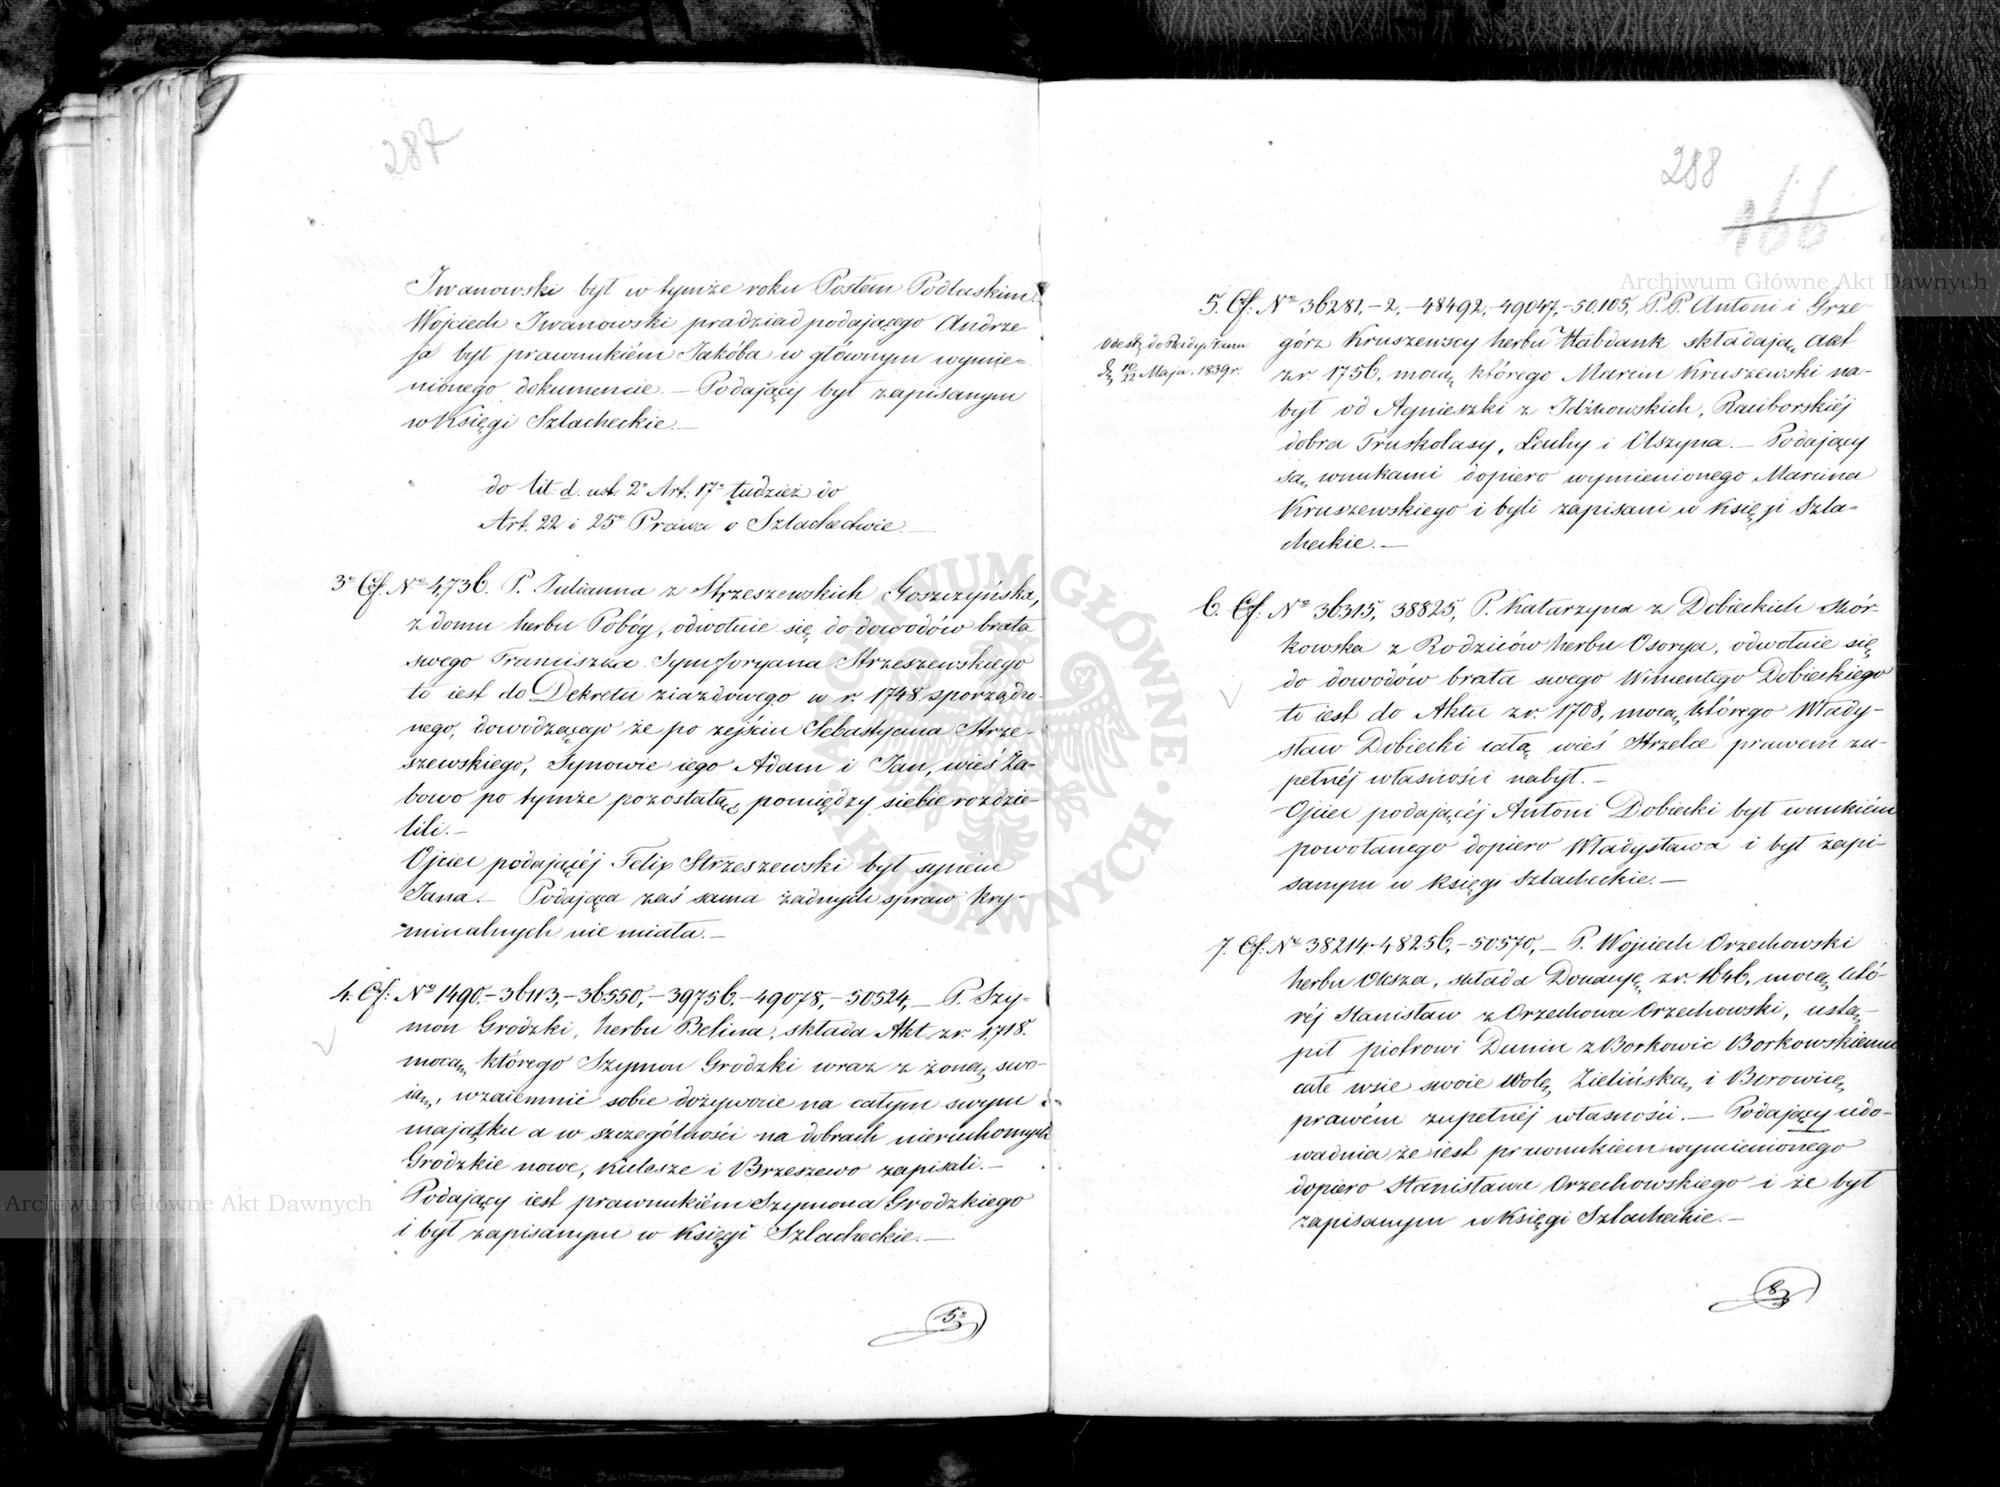 287
Iwanowski był w tymże roku Posłem Podlaskim
Wojciech Iwanowski pradziad podającego Andrze
ja był prawnukiém Jakóba w głównym wymie=
nionego dokumencie. — Podający był zapisanym
w Księgi Szlacheckie. —
do lit: d. ust. 2° Art: 17° tudzież do
Art. 22 i 25° Prawa o Szlachectwie. —
3° Cf. N° 4,736. P. Julianna z Strzeszewskich Goszczyńska,
z domu herbu Pobóg, odwołuie się do dowodów brata
swego Franciszka Symforyana Strzeszewskiego
to iest do Dekretu ziazdowego w r. 1748 sporządzo-
nego, dowodzącego że po zejściu Sebastyana Strze-
szewskiego, Synowie iego Adam i Jan, wieś Ża-
bowo po tymże pozostałą, pomiędzy siebie rozdzie-
lili. —
Ojciec podającéj Felix Strzeszewski był synem
Jana. — Podająca zaś sama żadnych spraw kry-
minalnych nie miała. —
4. Cf: N° 1490. – 36113, – 36550, – 39756. – 49078, – 50524, — P. Szy-
mon Grodzki, herbu Belina, składa Akt z r. 1718.
mocą, którego Szymon Grodzki wraz z żoną swo-
ią, wzaiemnie sobie dożywocie na całym swym
majątku a w szczególności na dobrach nieruchomych
Grodzkie nowe, Kulesze i Brzeszewo zapisali. —
Podający iest prawnukiém Szymona Grodzkiego
i był zapisanym w Księgi Szlacheckie. —
5°
288
166
5. Cf: N° 36281, – 2, – 48492, – 49047, – 50,105, P.P. Antoni i Grze-
górz Kruszewscy herbu Habdank składają akt
z r. 1756, mocą którego Marcin Kruszewski na-
był od Agnieszki z Idźkowskich, Raciborskiéj
dobra Truskolasy, Łachy i Olszyna. — Podający
są, wnukami dopiero wymienionego Marcina
Kruszewskiego i byli zapisani w Księgi Szla-
checkie. —
do
d. 10/22 Maja, 1839 r.
6. Cf: N° 36315, 38825, P. Katarzyna z Dobieckich Skór-
kowska z Rodziców herbu Osorya, odwołuie się
do dowodów brata swego Wincentego Dobieckiego
to iest do Aktu z r. 1708, mocą którego Włady-
sław Dobiecki całą wieś Strzelce prawem zu-
pełnéj własności nabył. —
Ojciec podającéj Antoni Dobiecki był wnukiém
powołanego dopiero Władysława i był zapi-
sanym w Księgi Szlacheckie. —
7. Cf: N° 38214 – 48256, – 50570, — P. Wojciech Orzechowski
herbu Oksza, składa Donacyę, z r. 1646, mocą któ-
réj Stanisław z Orzechowa Orzechowski, ustą-
pił Piotrowi Dunin z Borkowic Borkowskiemu
całe wsie swoie Wolę, Zielińską, i Borowicę,
prawém zupełnéj własności. — Podający udo-
wadnia że iest prawnukiem wymienionego
dopiero Stanisława Orzechowskiego i że był
zapisanym w Księgi Szlacheckie. —
8
Archiwum Główne Akt Dawnych
Archiwum Główne Akt Dawnych
ARCHIWUM GŁÓWNE AKT DAWNYCH